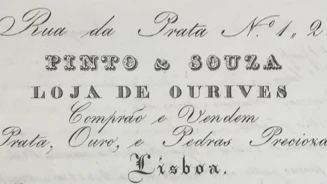 Rua da Prata N.º 1, 2
PINTO & SOUZA
LOJA DE OURIVES
Comprão e Vendem
Prata, Ouro, e Pedras Precioza
Lisboa.